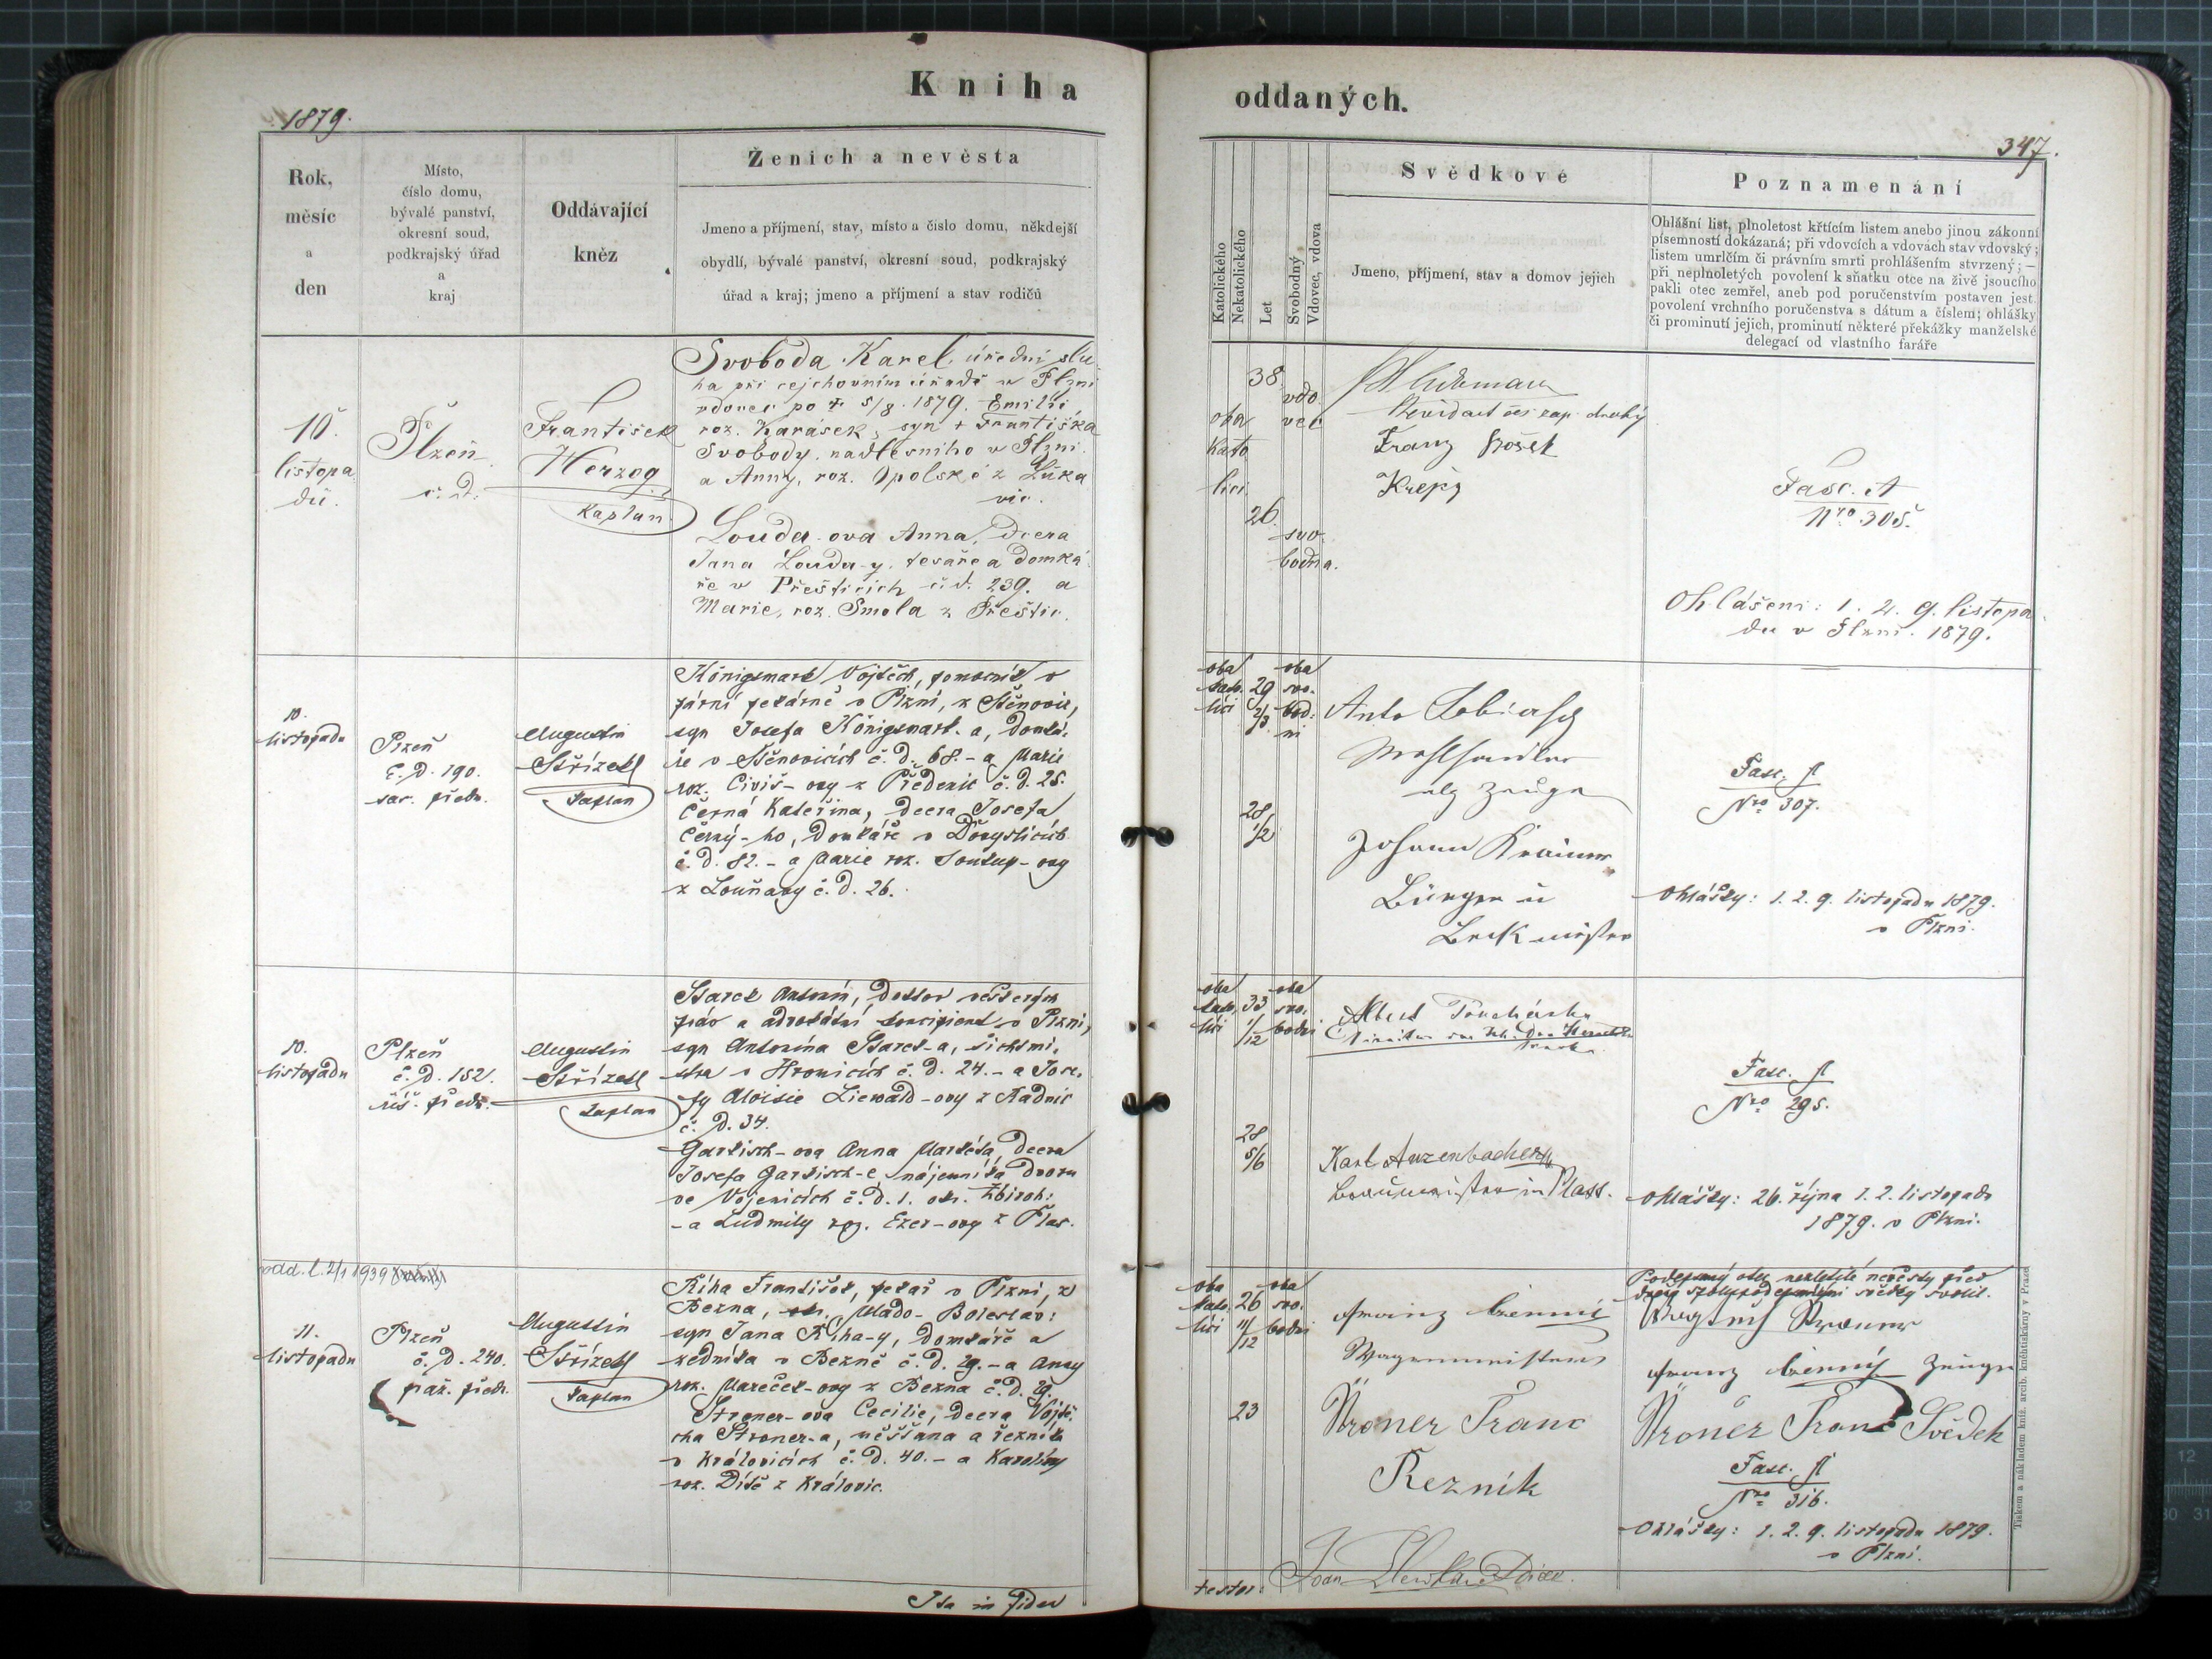 Kniha oddaných.
1879.
347.
Rok,
měsíc
a
den
Místo,
číslo domu,
bývalé panství,
okresní soud,
podkrajský úřad
a
kraj
Oddávající
kněz
Ženich a nevěsta
Jmeno a příjmení, stav, místo a číslo domu, někdejší
obydlí, bývalé panství, okresní soud, podkrajský
úřad a kraj; jmeno a příjmení a stav rodičů
Katolického
Nekatolického
Let
Svobodný
Vdovec, vdova
Svědkové
Jmeno, příjmení, stav a domov jejich
Poznamenání
Ohlášní list, plnoletost křtícím listem anebo jinou zákonní
písemností dokázaná; při vdovcích a vdovách stav vdovský;
listem umrlčím či právním smrti prohlášením stvrzený; —
při neplnoletých povolení k sňatku otce na živě jsoucího
pakli otec zemřel, aneb pod poručenstvím postaven jest
povolení vrchního poručenstva s dátum a číslem; ohlášky
či prominutí jejich, prominutí některé překážky manželské
delegací od vlastního faráře
10.
listopa
du.
Plzeň
č. d.
František
Herzog
kaplan
Svoboda Karel, úřední slu
ha při cejchovním úřadě v Plzni
vdovec po † 5/8. 1879. Emilii,
roz. Karásek, syn † Františka
Svobody, nadlesního v Plzni
a Anny, roz. Opolské z Luka
vic.
Louda-ova Anna, dcera
Jana Louda-y, tesaře a domká
ře v Přešticích č. d. 239. a
Marie, roz. Smola z Přeštic.
oba
kato
lici
38
26
vdo
vec
svo
bodna.
Franz
Krejčj
Fasc. A
Nro 305.
Ohlášeni: 1. 2. 9. listopa
du v Plzni. 1879.
10.
listopadu
Plzeň
č. D. 190.
sas. předm.
Augustin
Střízek
kaplan
Königsmark Vojtěch, pomocník v
parní pekárně v Plzni, z Stěnovic,
syn Josefa Königsmark-a, domká-
ře v Stěnovicích č. d. 68. - a Marie
roz. Civiš-ovy z Předenic č. d. 25.
Černá Kateřina, dcera Josefa
Černý-ho, domkáře v Dobyslicích
č. d. 82. - a Marie roz. Soukup-ovy
z Louňavy č. d. 26.
oba
kato.
líci
29
2/3
28
1/2
oba
svo.
bod.
ni
Anto
Mehlhändler
als Zeuge
Johann
Bürger u
Bäckmeister
Fasc. A
Nro 307.
Ohlášky: 1. 2. 9. listopadu 1879.
v Plzni.
10.
listopadu
Plzeň
č. D. 152.
říš. předm.
Augustin
Střízek
kaplan
Starck Antonín, Doktor veškerých
práv a advokátní koncipient v Plzni,
syn Antonína Starck-a, šichtmi-
stra v Hromicích č. d. 24. - a Jose-
fy Aloisie Liewald-ovy z Radnic
č. D. 34.
Gartisch-ova Anna Markéta, dcera
Josefa Gartisch-e, nájemníka dvoru
ve Vojenicích č. d. 1. okr. Zbiroh:
- a Ludmily roz. Ezer-ovy z Plas.
oba
kato.
líci
33
1/12
28
5/6
oba
svo.
bodni
Albert
Karl Anzenbacher
Braumeister in Plass.
Fasc. A
Nro 295.
Ohlášky: 26. října 1. 2. listopadu
1879. v Plzni.
odd. l. 2/1 1939
11.
listopadu
Plzeň
č. D. 240.
praž. předm.
Augustin
Střízek
kaplan
Říha František, pekař v Plzni, z
Bezna, okr. Mlado-Boleslav:
syn Jana Říha-y, domkáře a
zedníka v Bezně č. d. 29. - a Anny
roz. Mareček-ovy z Bezna č. d. 19.
Stroner-ova Cecilie, dcera Vojtě-
cha Stroner-a, měšťana a řezníka
v Královicích č. d. 40. - a Karoliny
roz. Dítě z Královic.
oba
kato.
líci
26
11/12
23
oba
svo.
bodni
Franz
Wagenmeister
Ströner Franc
Rezník
Podepsaný otec nezletilé nevěsty před
dvěma spolupodepsanými svědky svolil.
Franz Zeuge
Ströner Franc Svědek
Fasc. A
Nro 316.
Ohlášky: 1. 2. 9. listopadu 1879.
v Plzni.
Ita in fidem
testor:
Tiskem a nákladem kníž. arcib. knihtiskárny v Praze